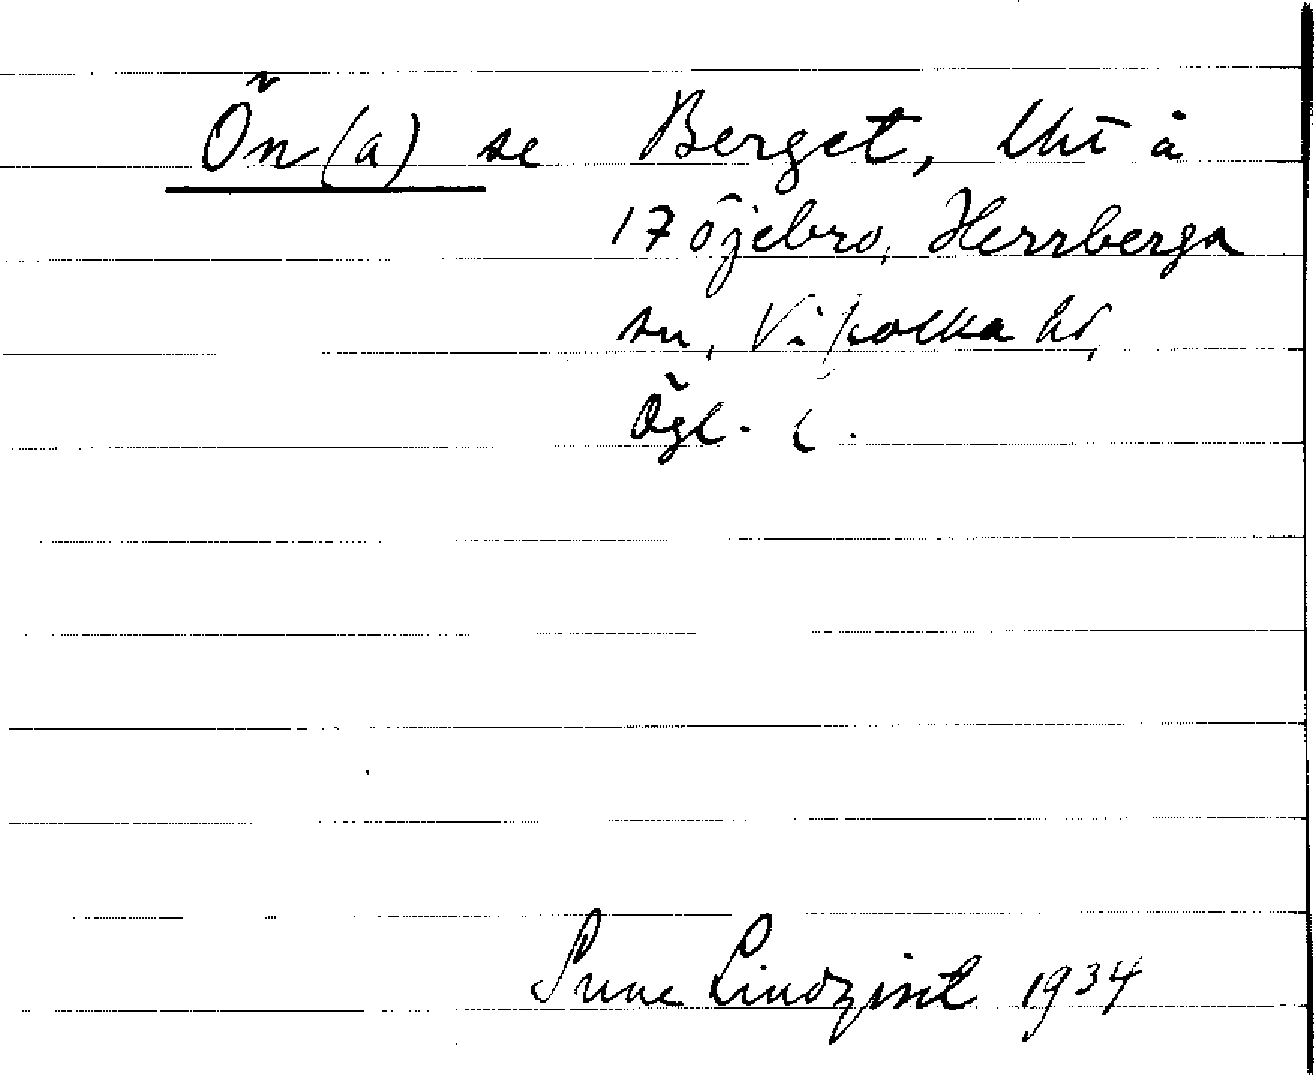 Ön(a) se Berget, lht å
17 Öjebro, Herrberga
sn, Vifolka hd,
Ögl. l.
Sune Lindqvist 1934